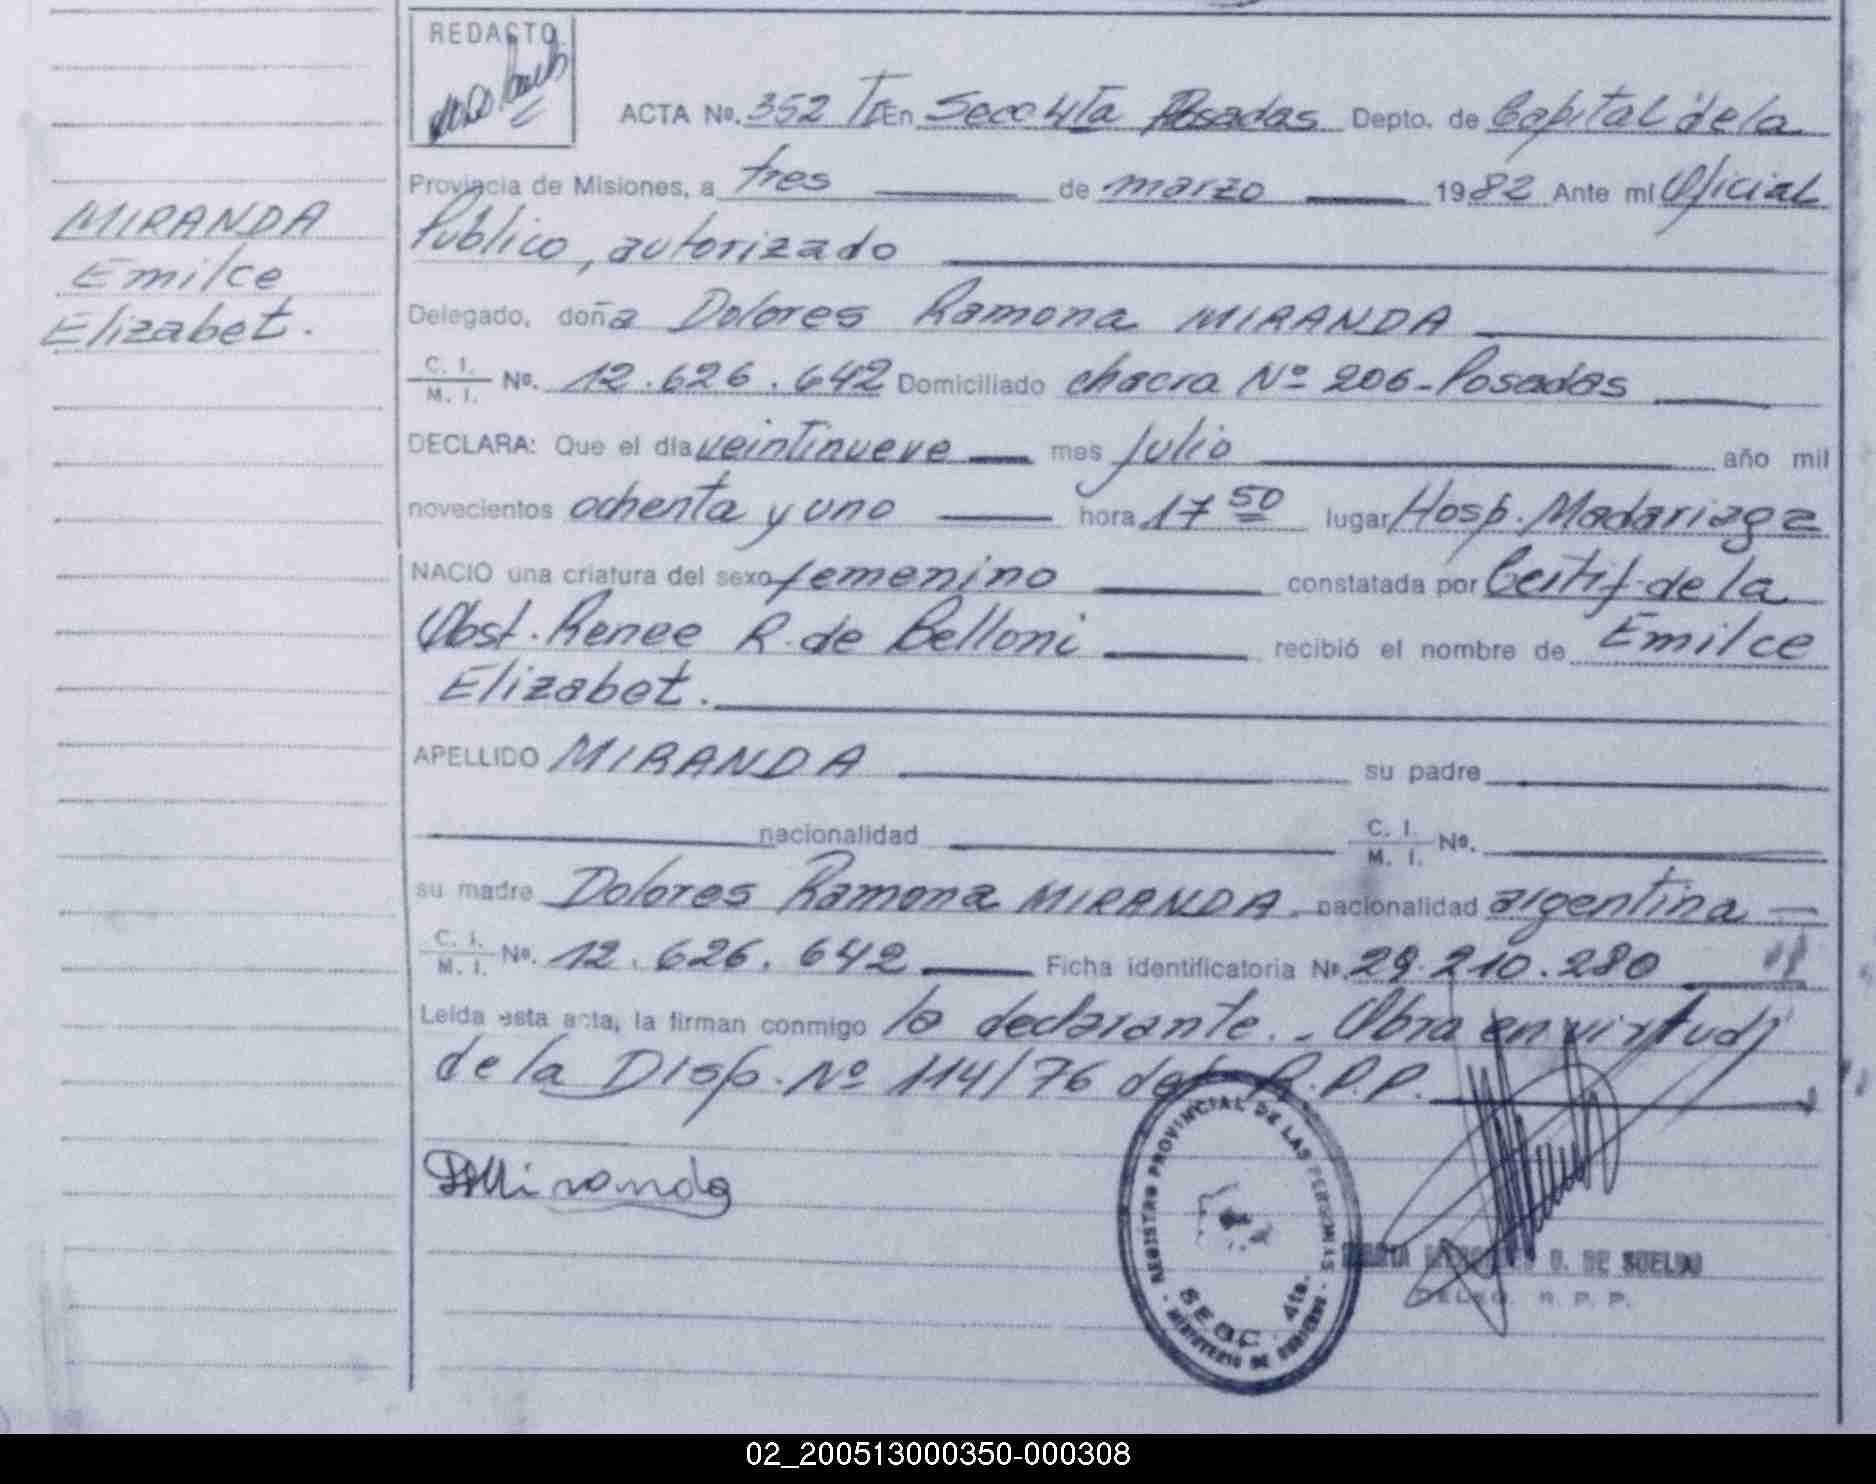 REDACTO
ACTA Nº. 352 En Secc 4ta Posadas Depto. de Capital de la
Provincia de Misiones, a tres de marzo 1982 Ante mí Oficial
Público, autorizado
Delegado, doña Dolores Ramona MIRANDA
C. I. / M. I. Nº. 12.626.642 Domiciliado chacra Nº 206-Posadas
DECLARA: Que el día veintinueve mes julio año mil
novecientos ochenta y uno hora 17 50 lugar Hosp. Madariaga
NACIO una criatura del sexo femenino constatada por Certif. de la
Obst. Renee R. de Belloni recibió el nombre de Emilce
Elizabet.
APELLIDO MIRANDA su padre
nacionalidad C. I. / M. I. Nº.
su madre Dolores Ramona MIRANDA. nacionalidad argentina
C. I. / M. I. Nº. 12.626.642 Ficha identificatoria Nº. 29.210.280
Leída esta acta, la firman conmigo la declarante.- Obra en virtud
de la Disp. Nº 114/76 del R.P.P.
MIRANDA
Emilce
Elizabet.
Miranda
REGISTRO PROVINCIAL DE LAS PERSONAS
SECC. 4ta.
MINISTERIO DE GOBIERNO
D. DE SUELDO
DELEG. R. P. P.
02_200513000350-000308